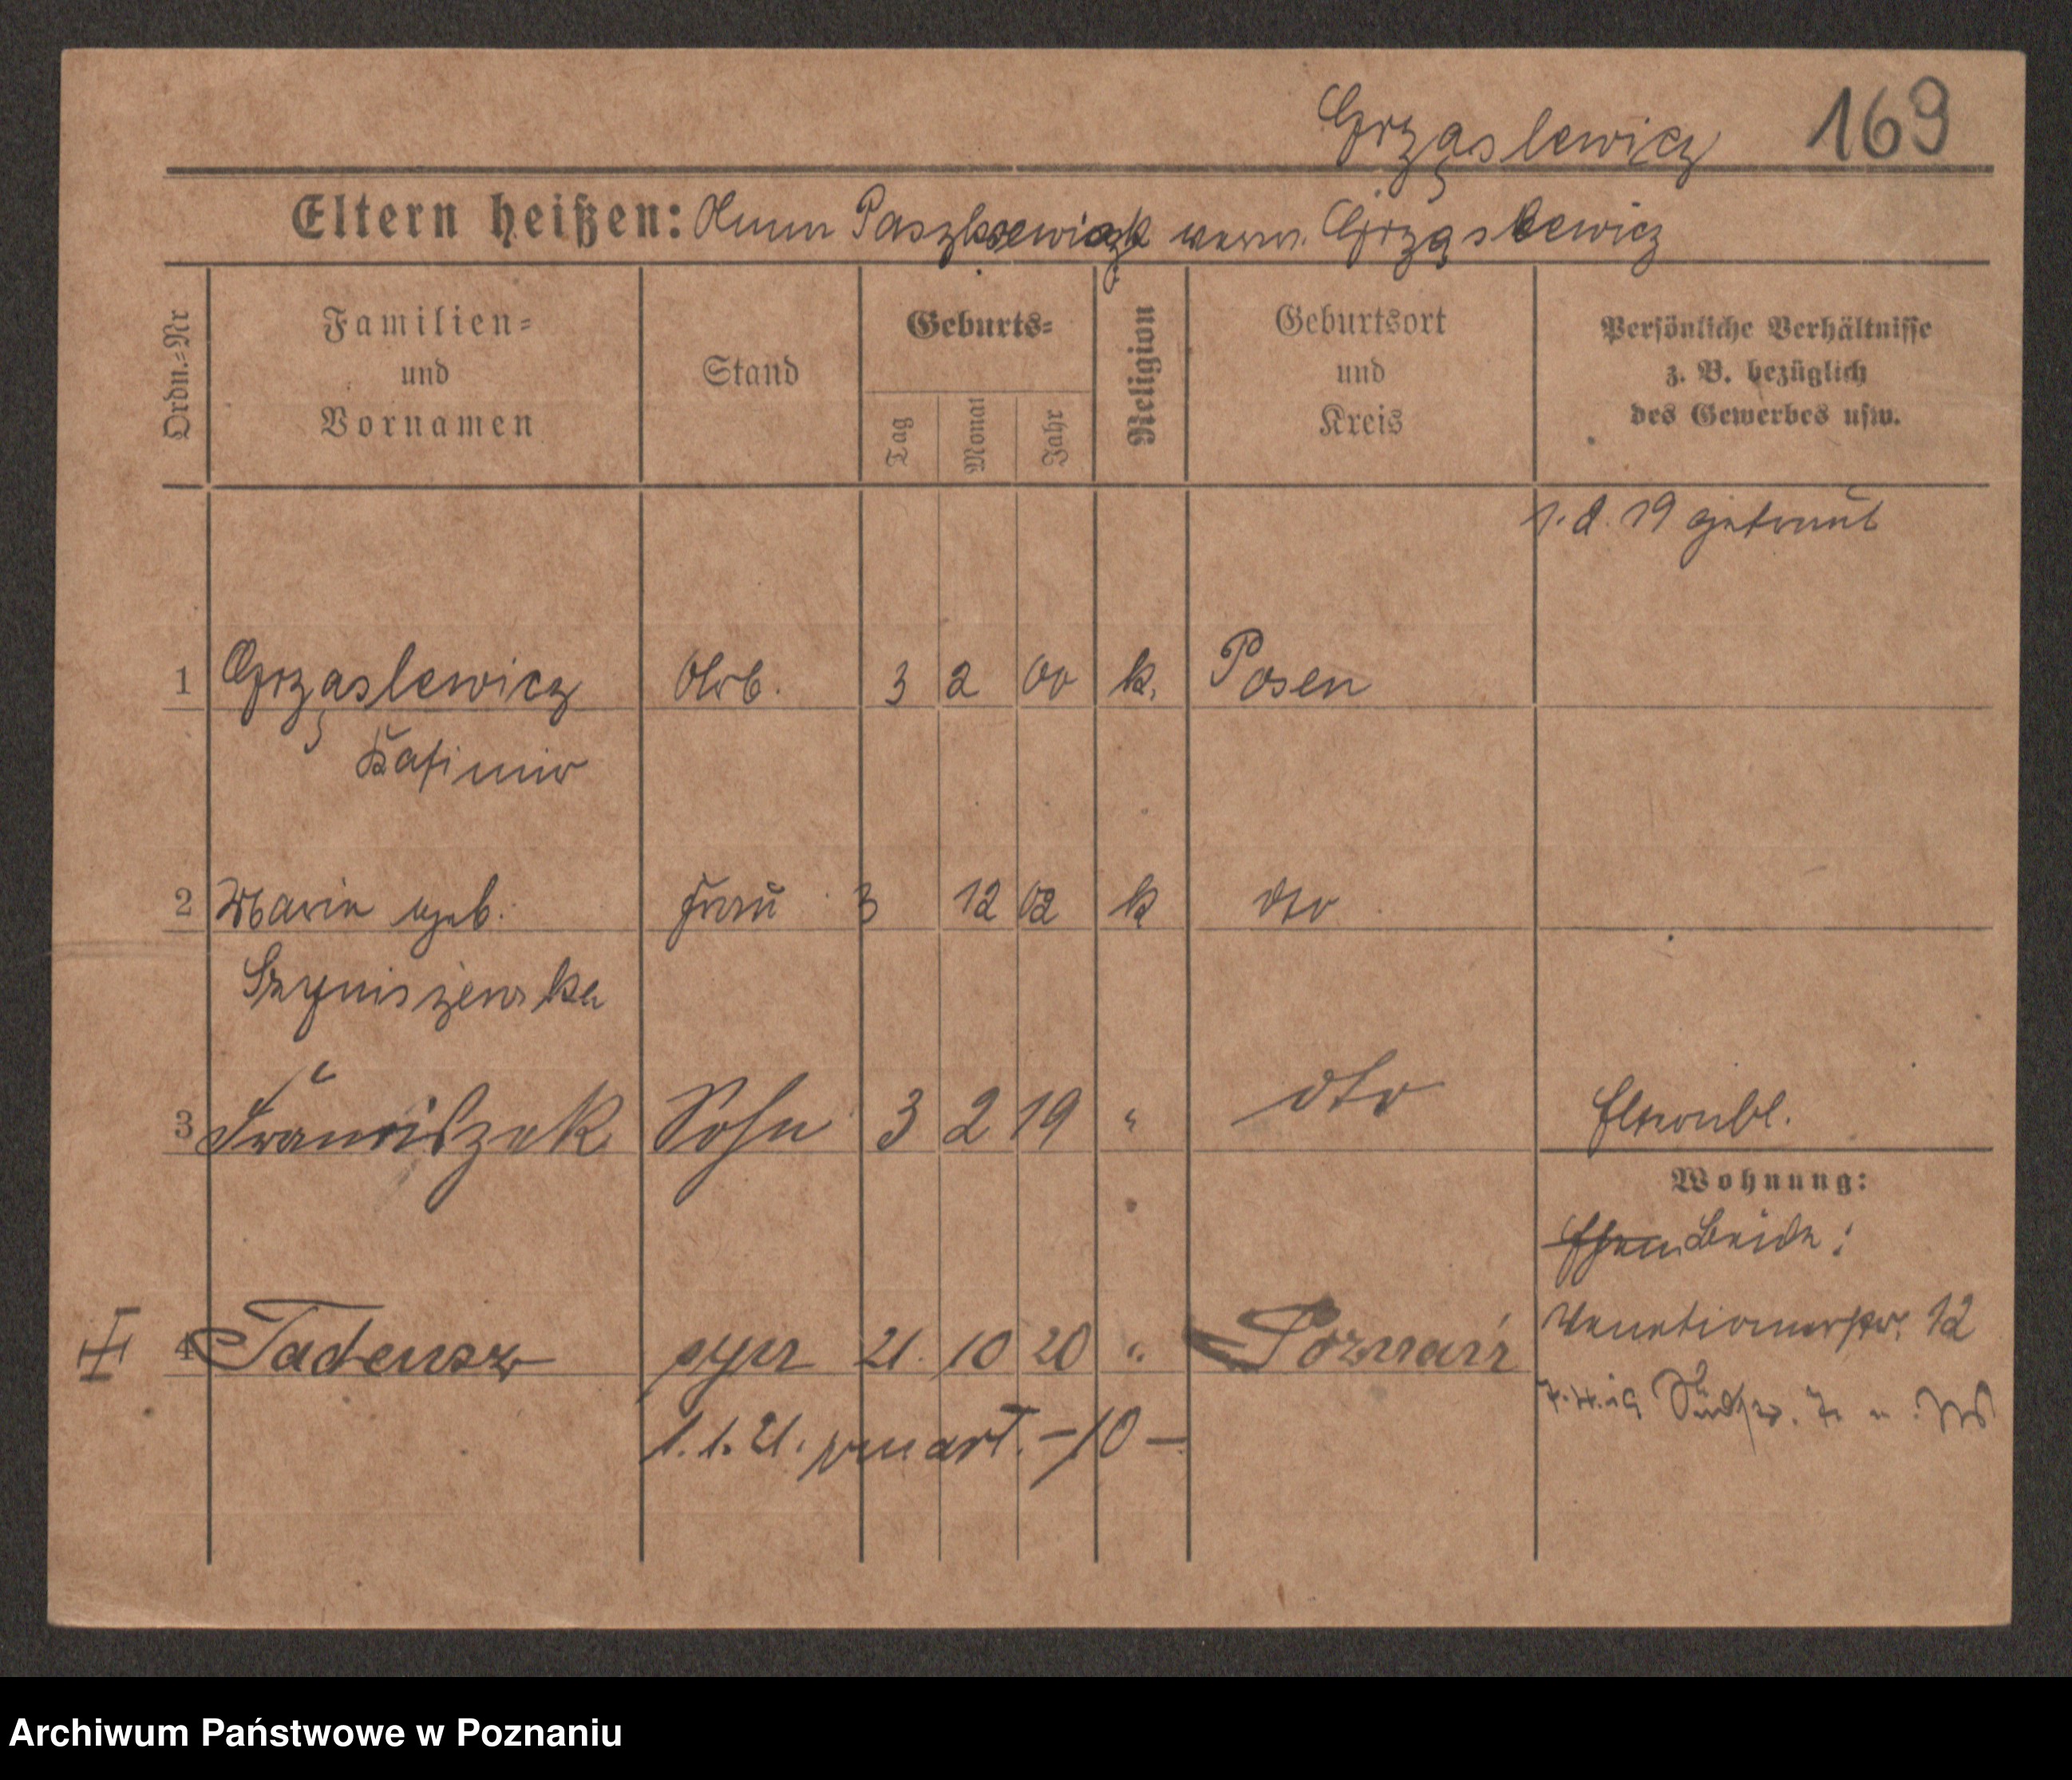 Grząslewicz 169
Eltern heißen: Anna Paszkowiak verw. Grząslewicz
Ordn.=Nr
Familien=
und
Vornamen
Stand
Geburts=
Tag
Monat
Jahr
Religion
Geburtsort
und
Kreis
Persönliche Verhältnisse
z. B. bezüglich
des Gewerbes usw.
1. 2. 19 getraut
1 Grząslewicz Arb. 3 2 00 k. Posen
Kasimir
2 Maria geb. Frau 3 12 02 k dto
3 Franciszek Sohn 3 2 19 " dto
Wohnung:
beide:
4 Tadeusz syn 21. 10 20 " Poznań
Venetianerstr. 12
1. 1. 21. - 10 -
Archiwum Państwowe w Poznaniu